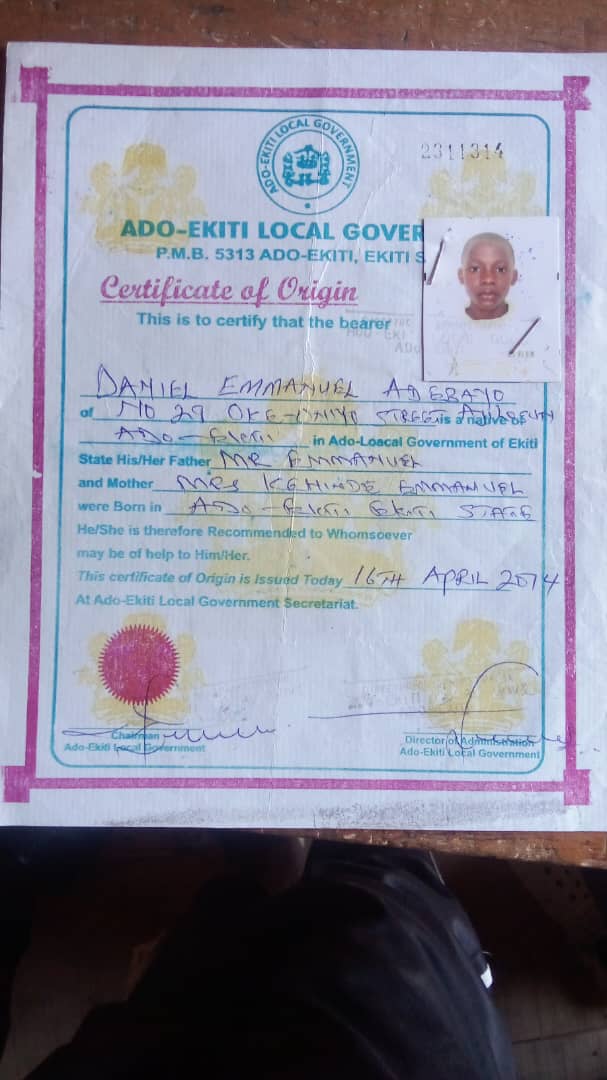 ADO-EKITI LOCAL GOVERNMENT
2311314
ADO-EKITI LOCAL GOVER
P.M.B. 5313 ADO-EKITI, EKITI S
Certificate of Origin
This is to certify that the bearer
DANIEL EMMANUEL ADEBAYO
of NO 29 OKE-INIYO STREET is a native of
ADO-EKITI in Ado-Loacal Government of Ekiti
State His/Her Father MR EMMANUEL
and Mother MRS KEHINDE EMMANUEL
were Born in ADO-EKITI EKITI STATE
He/She is therefore Recommended to Whomsoever
may be of help to Him/Her.
This certificate of Origin is Issued Today 16TH APRIL 2014
At Ado-Ekiti Local Government Secretariat.
Chairman
Ado-Ekiti Local Government
Director of Administration
Ado-Ekiti Local Government